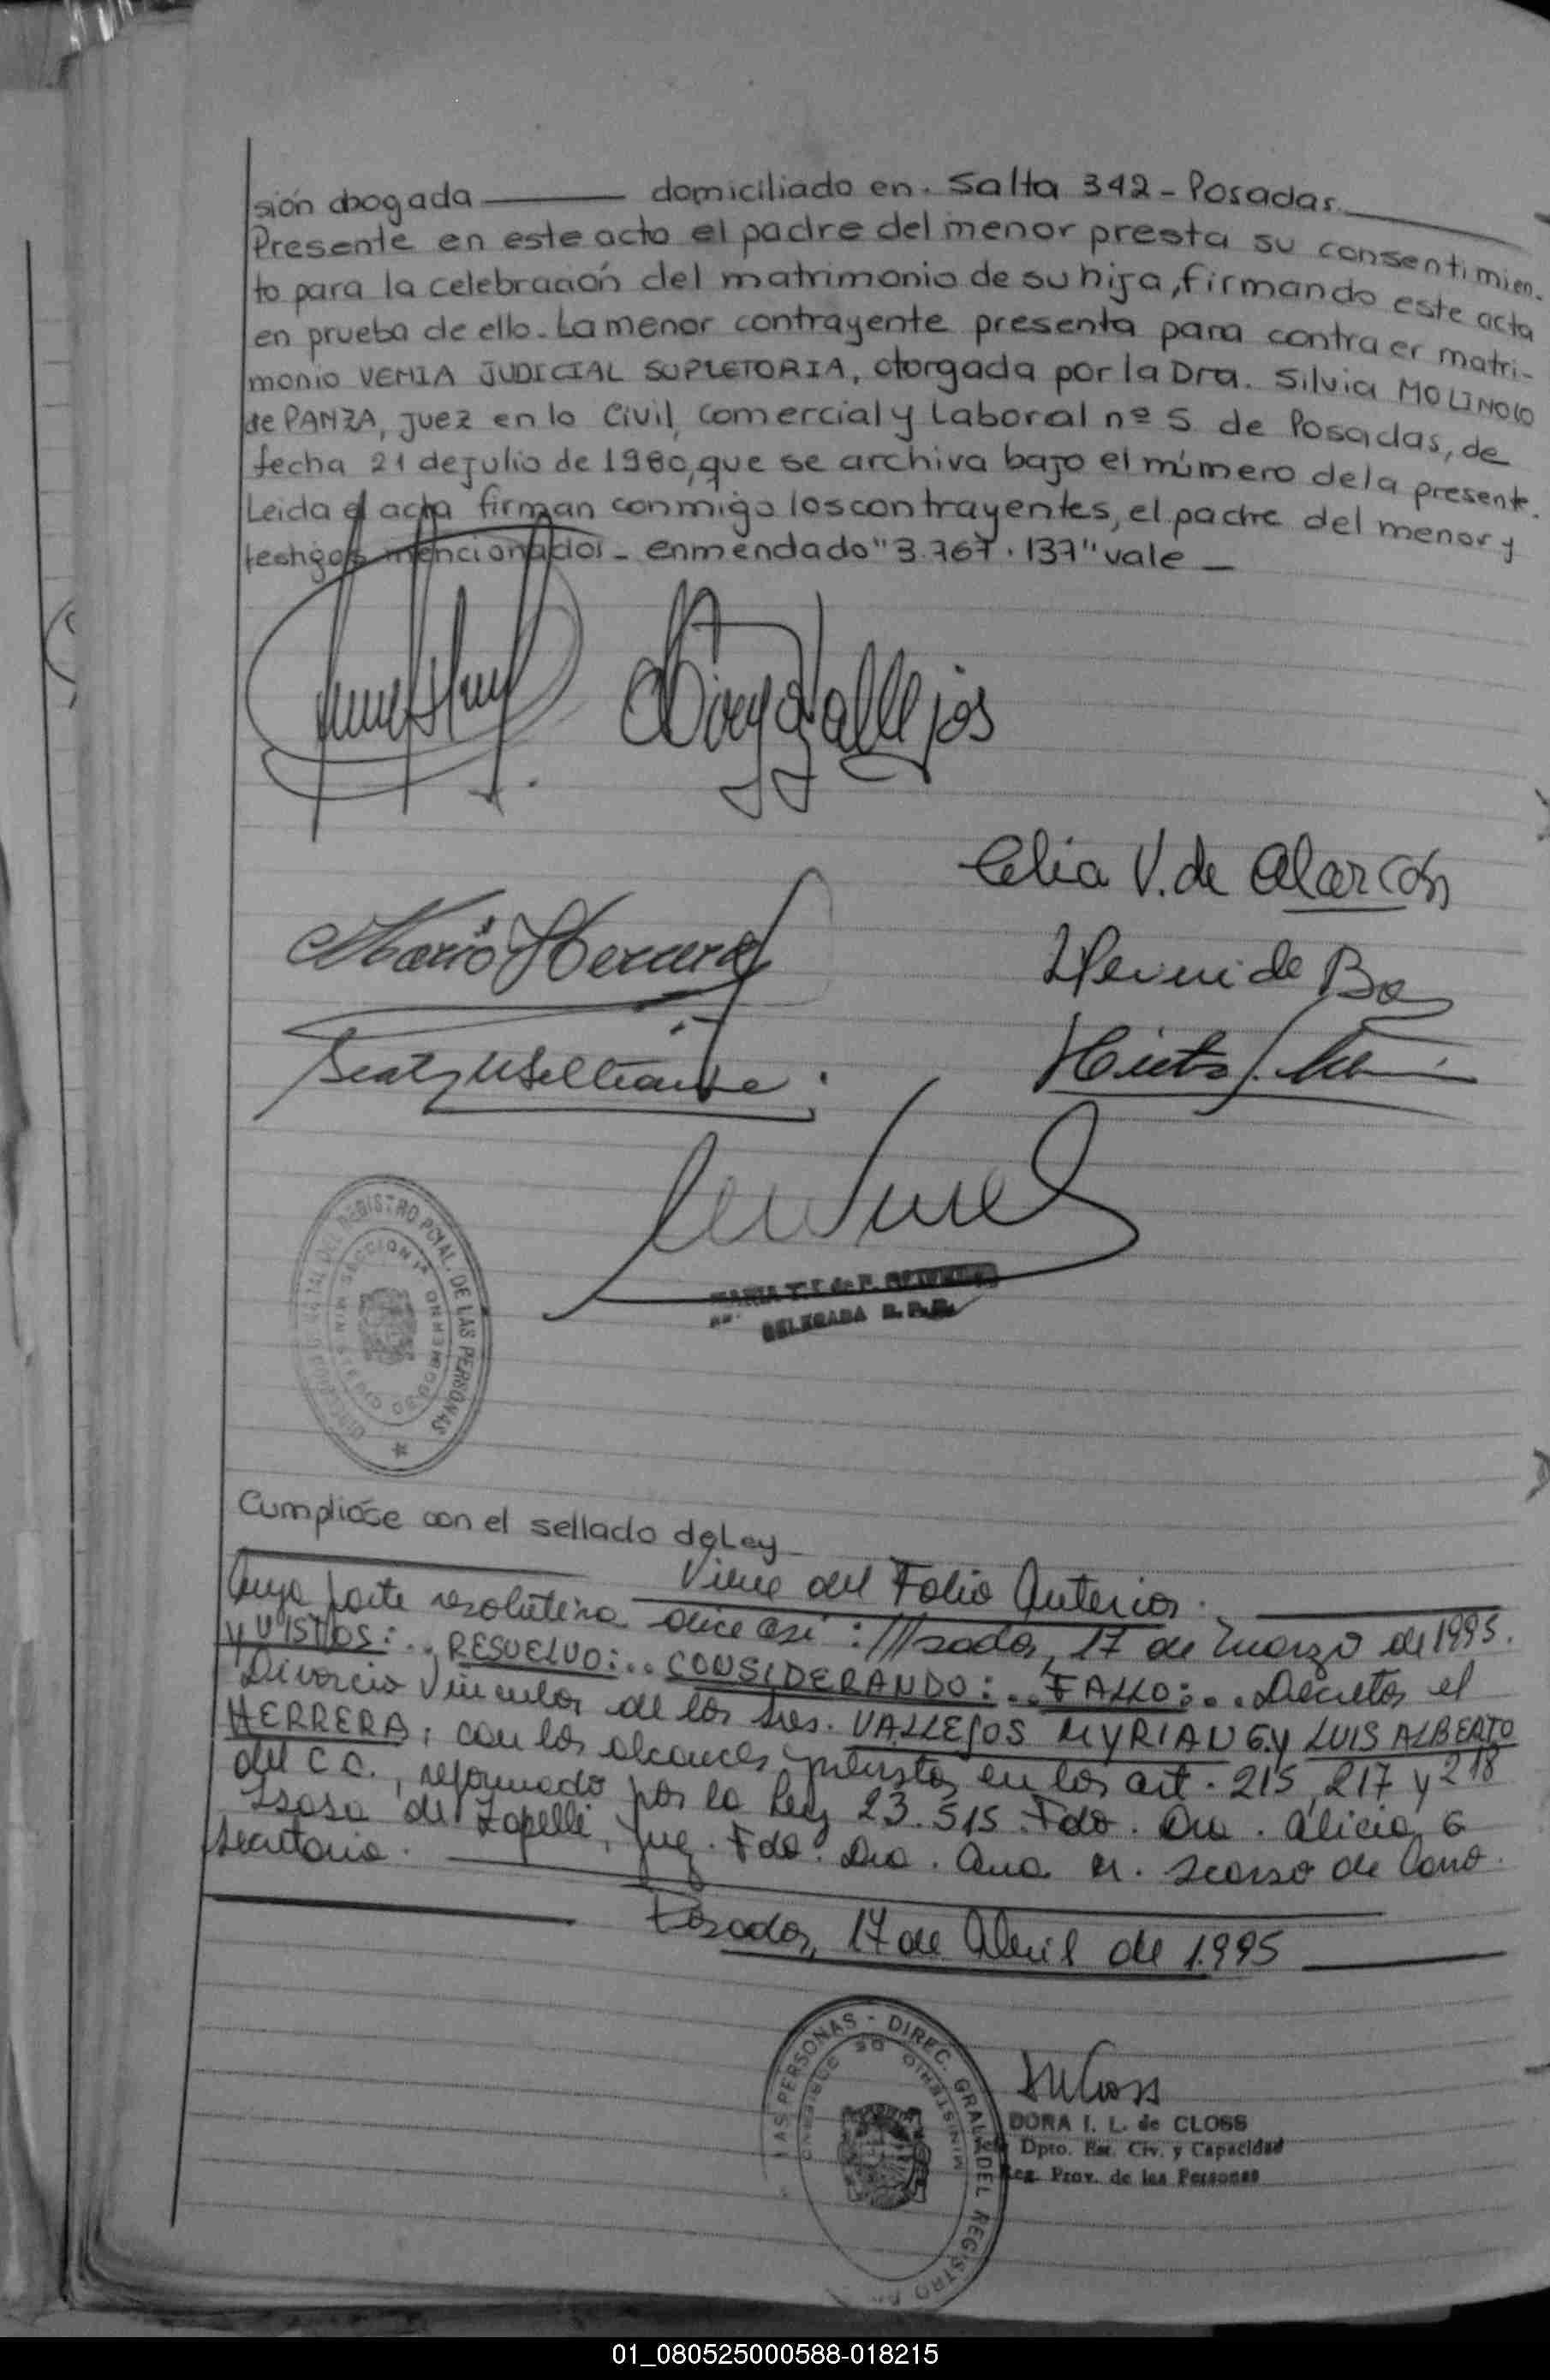 sión abogada ——— domiciliado en. Salta 342 - Posadas.
Presente en este acto el padre del menor presta su consentimien-
to para la celebración del matrimonio de su hija, firmando este acta
en prueba de ello. La menor contrayente presenta para contraer matri-
monio VENIA JUDICIAL SUPLETORIA, otorgada por la Dra. Silvia MOLINOLO
de PANZA, juez en lo Civil, Comercial y Laboral nº 5 de Posadas, de
fecha 21 de julio de 1980, que se archiva bajo el número de la presente.
Leida el acta firman conmigo los contrayentes, el padre del menor y
testigos mencionados - enmendado "3.767.137" vale -
Vallejos
Celia V. de Alarcón
Mario Herrera
DELEGADA R. P. P.
REGISTRO PCIAL. DE LAS PERSONAS
Cumplióse con el sellado de Ley
Viene del Folio Anterior.
Cuya parte resolutiva dice así: ///sadas, 17 de Marzo de 1995.
y VISTOS:.. RESUELVO:.. CONSIDERANDO:.. FALLO:... Decretar el
Divorcio Vincular de los Sres. VALLEJOS MYRIAN G. y LUIS ALBERTO
HERRERA; con los alcances previstos en los art. 215, 217 y 218
del C.C., reformado por la Ley 23.515. Fdo. Dra. Alicia G
Isasa de Zapelli, Juez. Fdo. Dra. Ana M. Scorso de Cano.
Secretaria.
Posadas, 17 de Abril de 1.995
LAS PERSONAS - DIREC. GRAL. DEL REGISTRO
MINISTERIO DE GOBIERNO
DORA I. L. de CLOSS
Dpto. Est. Civ. y Capacidad
Reg. Prov. de las Personas
01_080525000588-018215